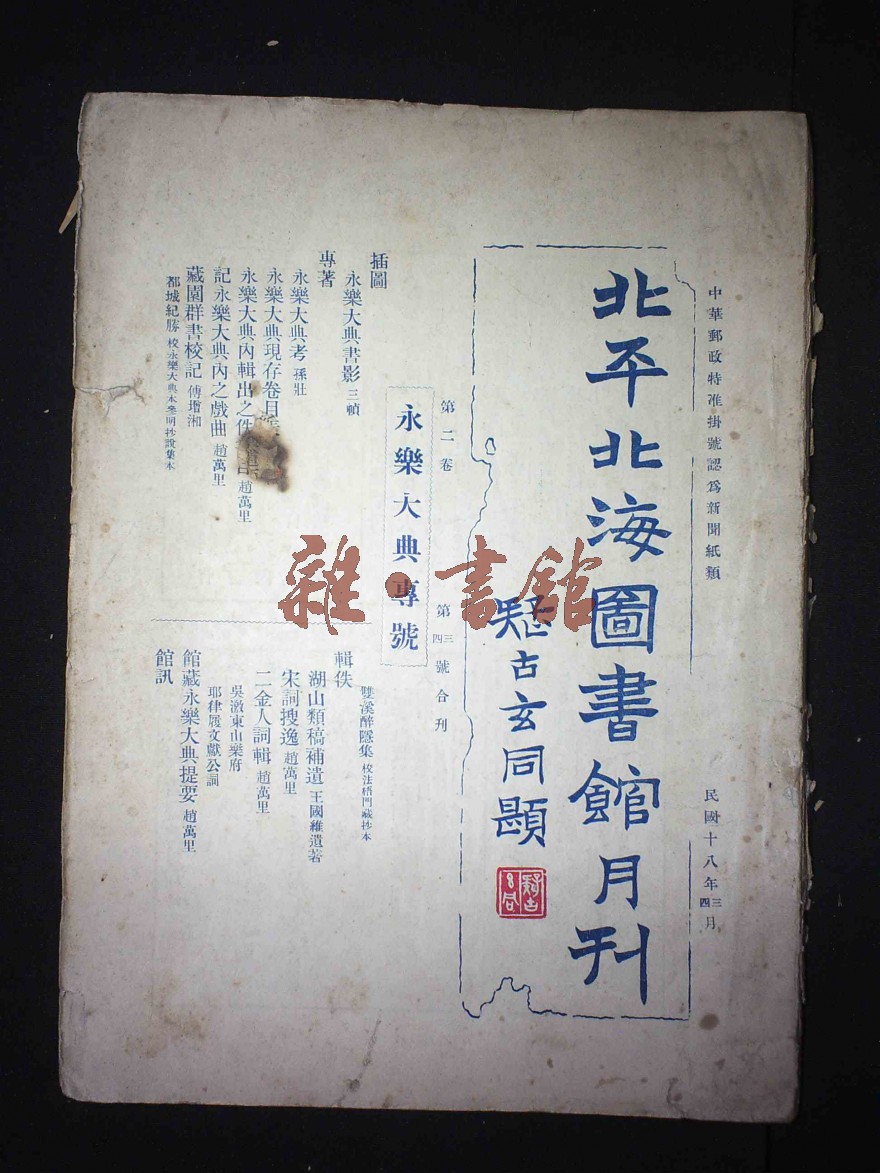 中華郵政特准掛號認爲新聞紙類
民國十八年三四月
北平北海圖書館月刊
疑古玄同題
疑古
第二卷 第三四號合刊
永樂大典專號
插圖
永樂大典書影 三幀
專著
永樂大典考 孫壯
永樂大典現存卷目
永樂大典內輯出之佚書 趙萬里
記永樂大典內之戲曲 趙萬里
藏園群書校記 傅增湘
都城紀勝 校永樂大典本參明抄說集本
雙溪醉隱集 校法梧門藏抄本
輯佚
湖山類稿補遺 王國維遺著
宋詞搜逸 趙萬里
二金人詞輯 趙萬里
吳激東山樂府
耶律履文獻公詞
館藏永樂大典提要 趙萬里
館訊
雜·書館